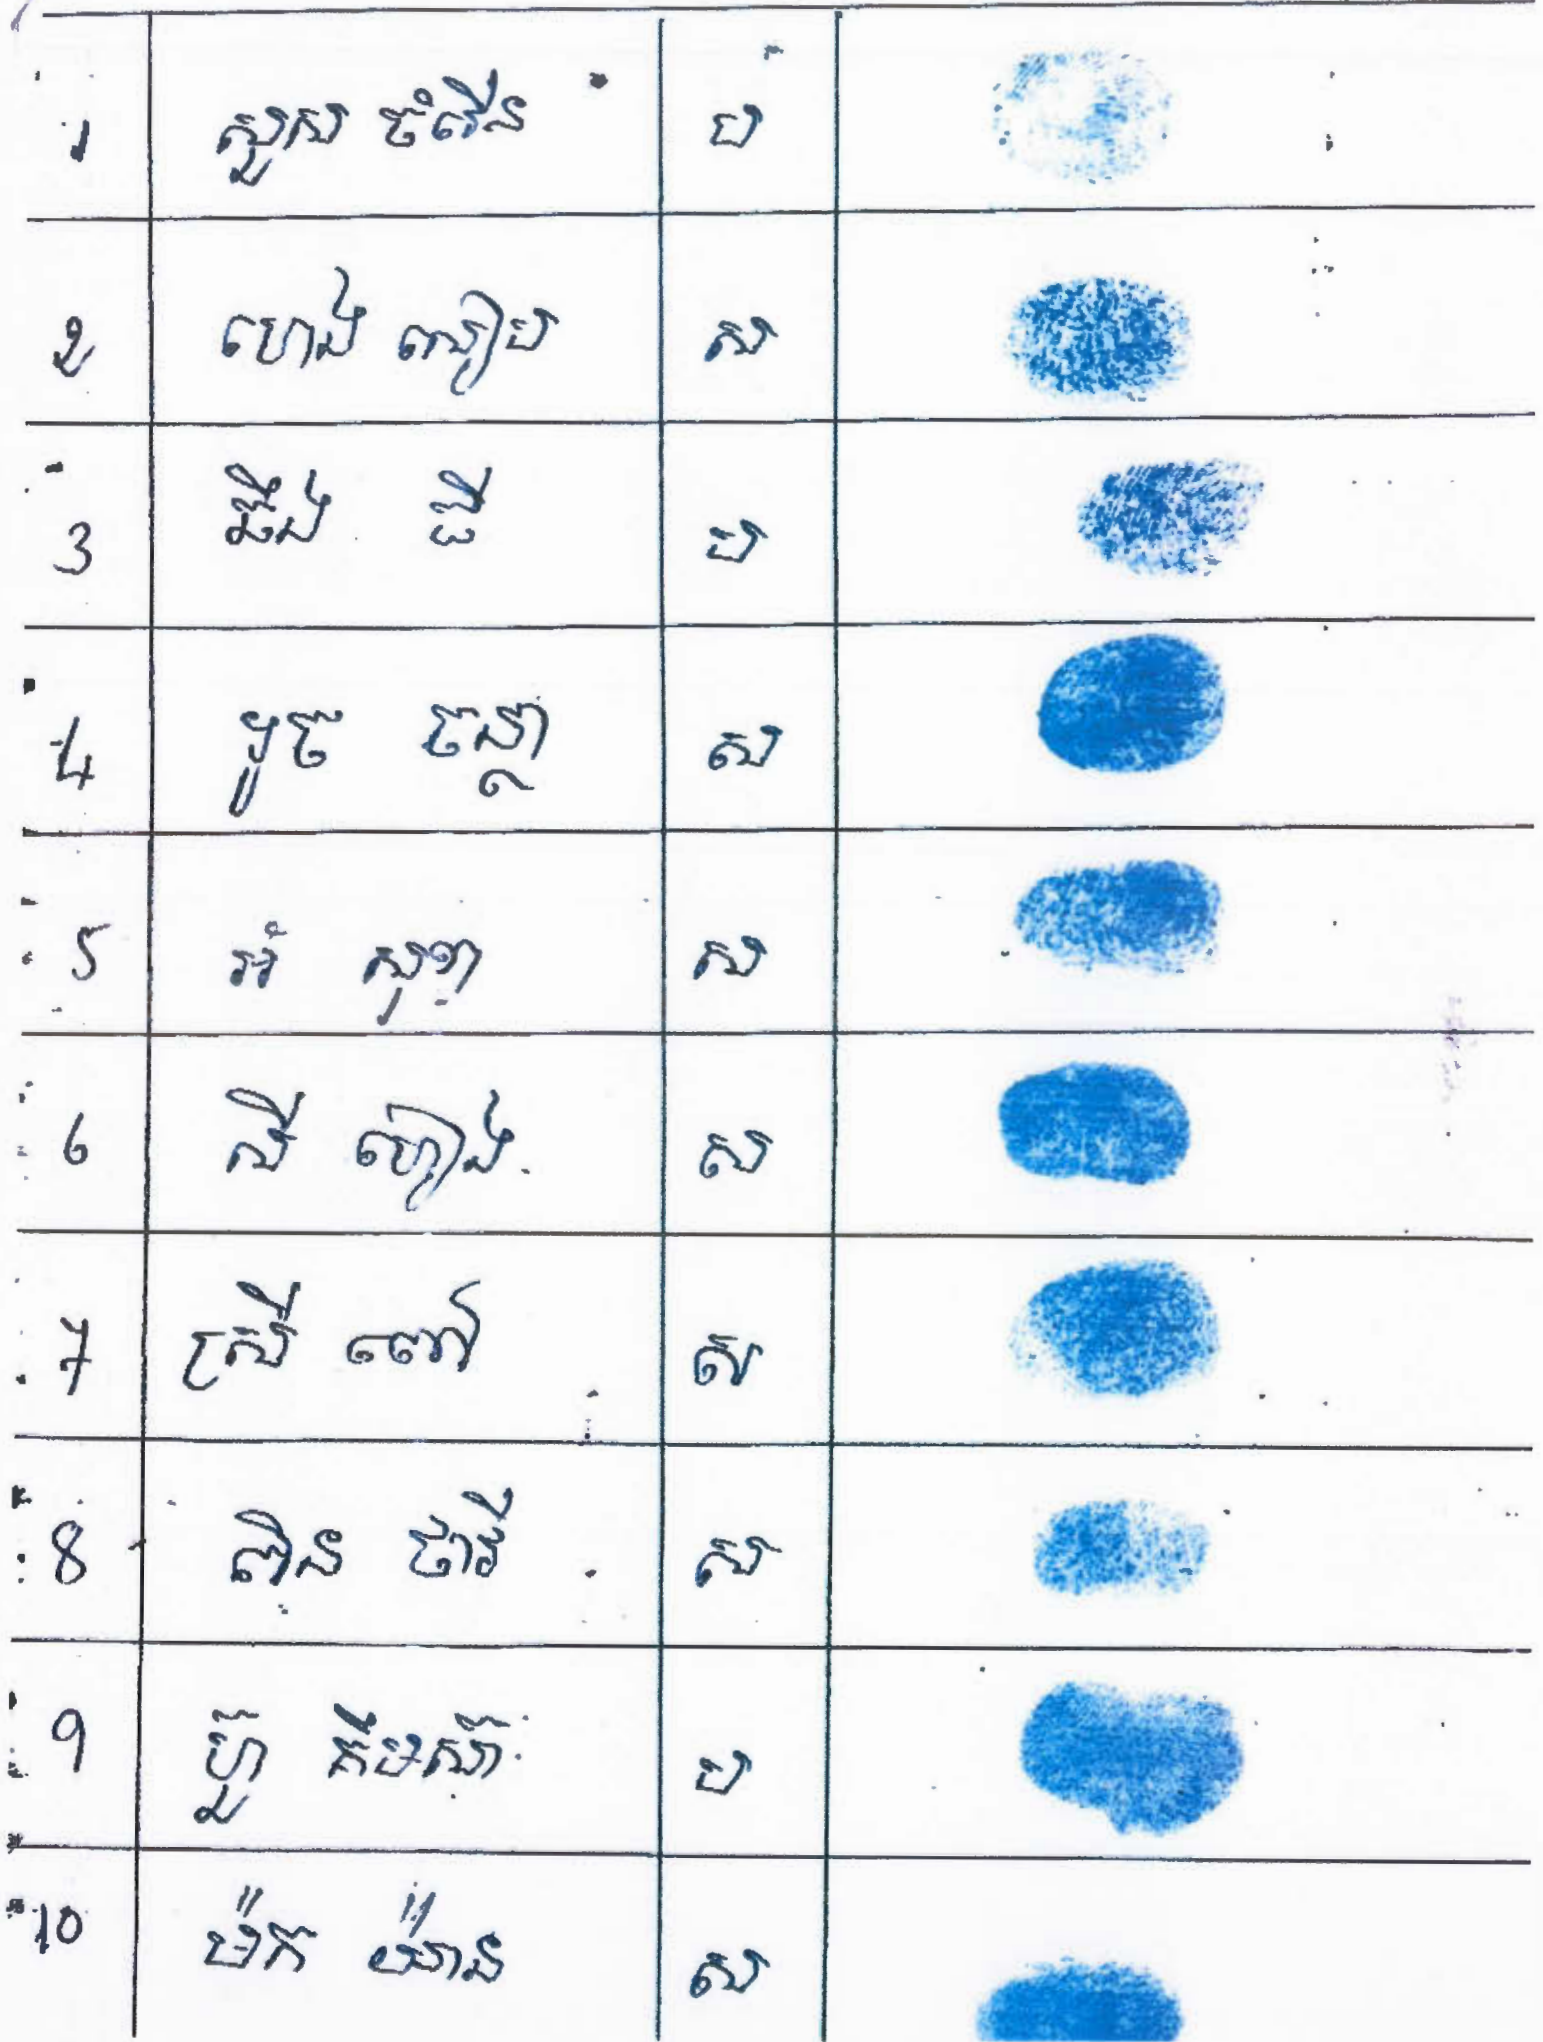 1 សួស ចំរើន ប
2 ហេង សៀប ស
3 ឆឹង ឌី ប
4 អូច ចន្ថា ស
5 អំ សុខា ស
6 សី ហៀង ស
7 ស្រី ពៅ ស
8 ពិន ថាវី ស
9 ហ៊ួ គឹមសៀ ប
10 ម៉ក យ៉ាន ស